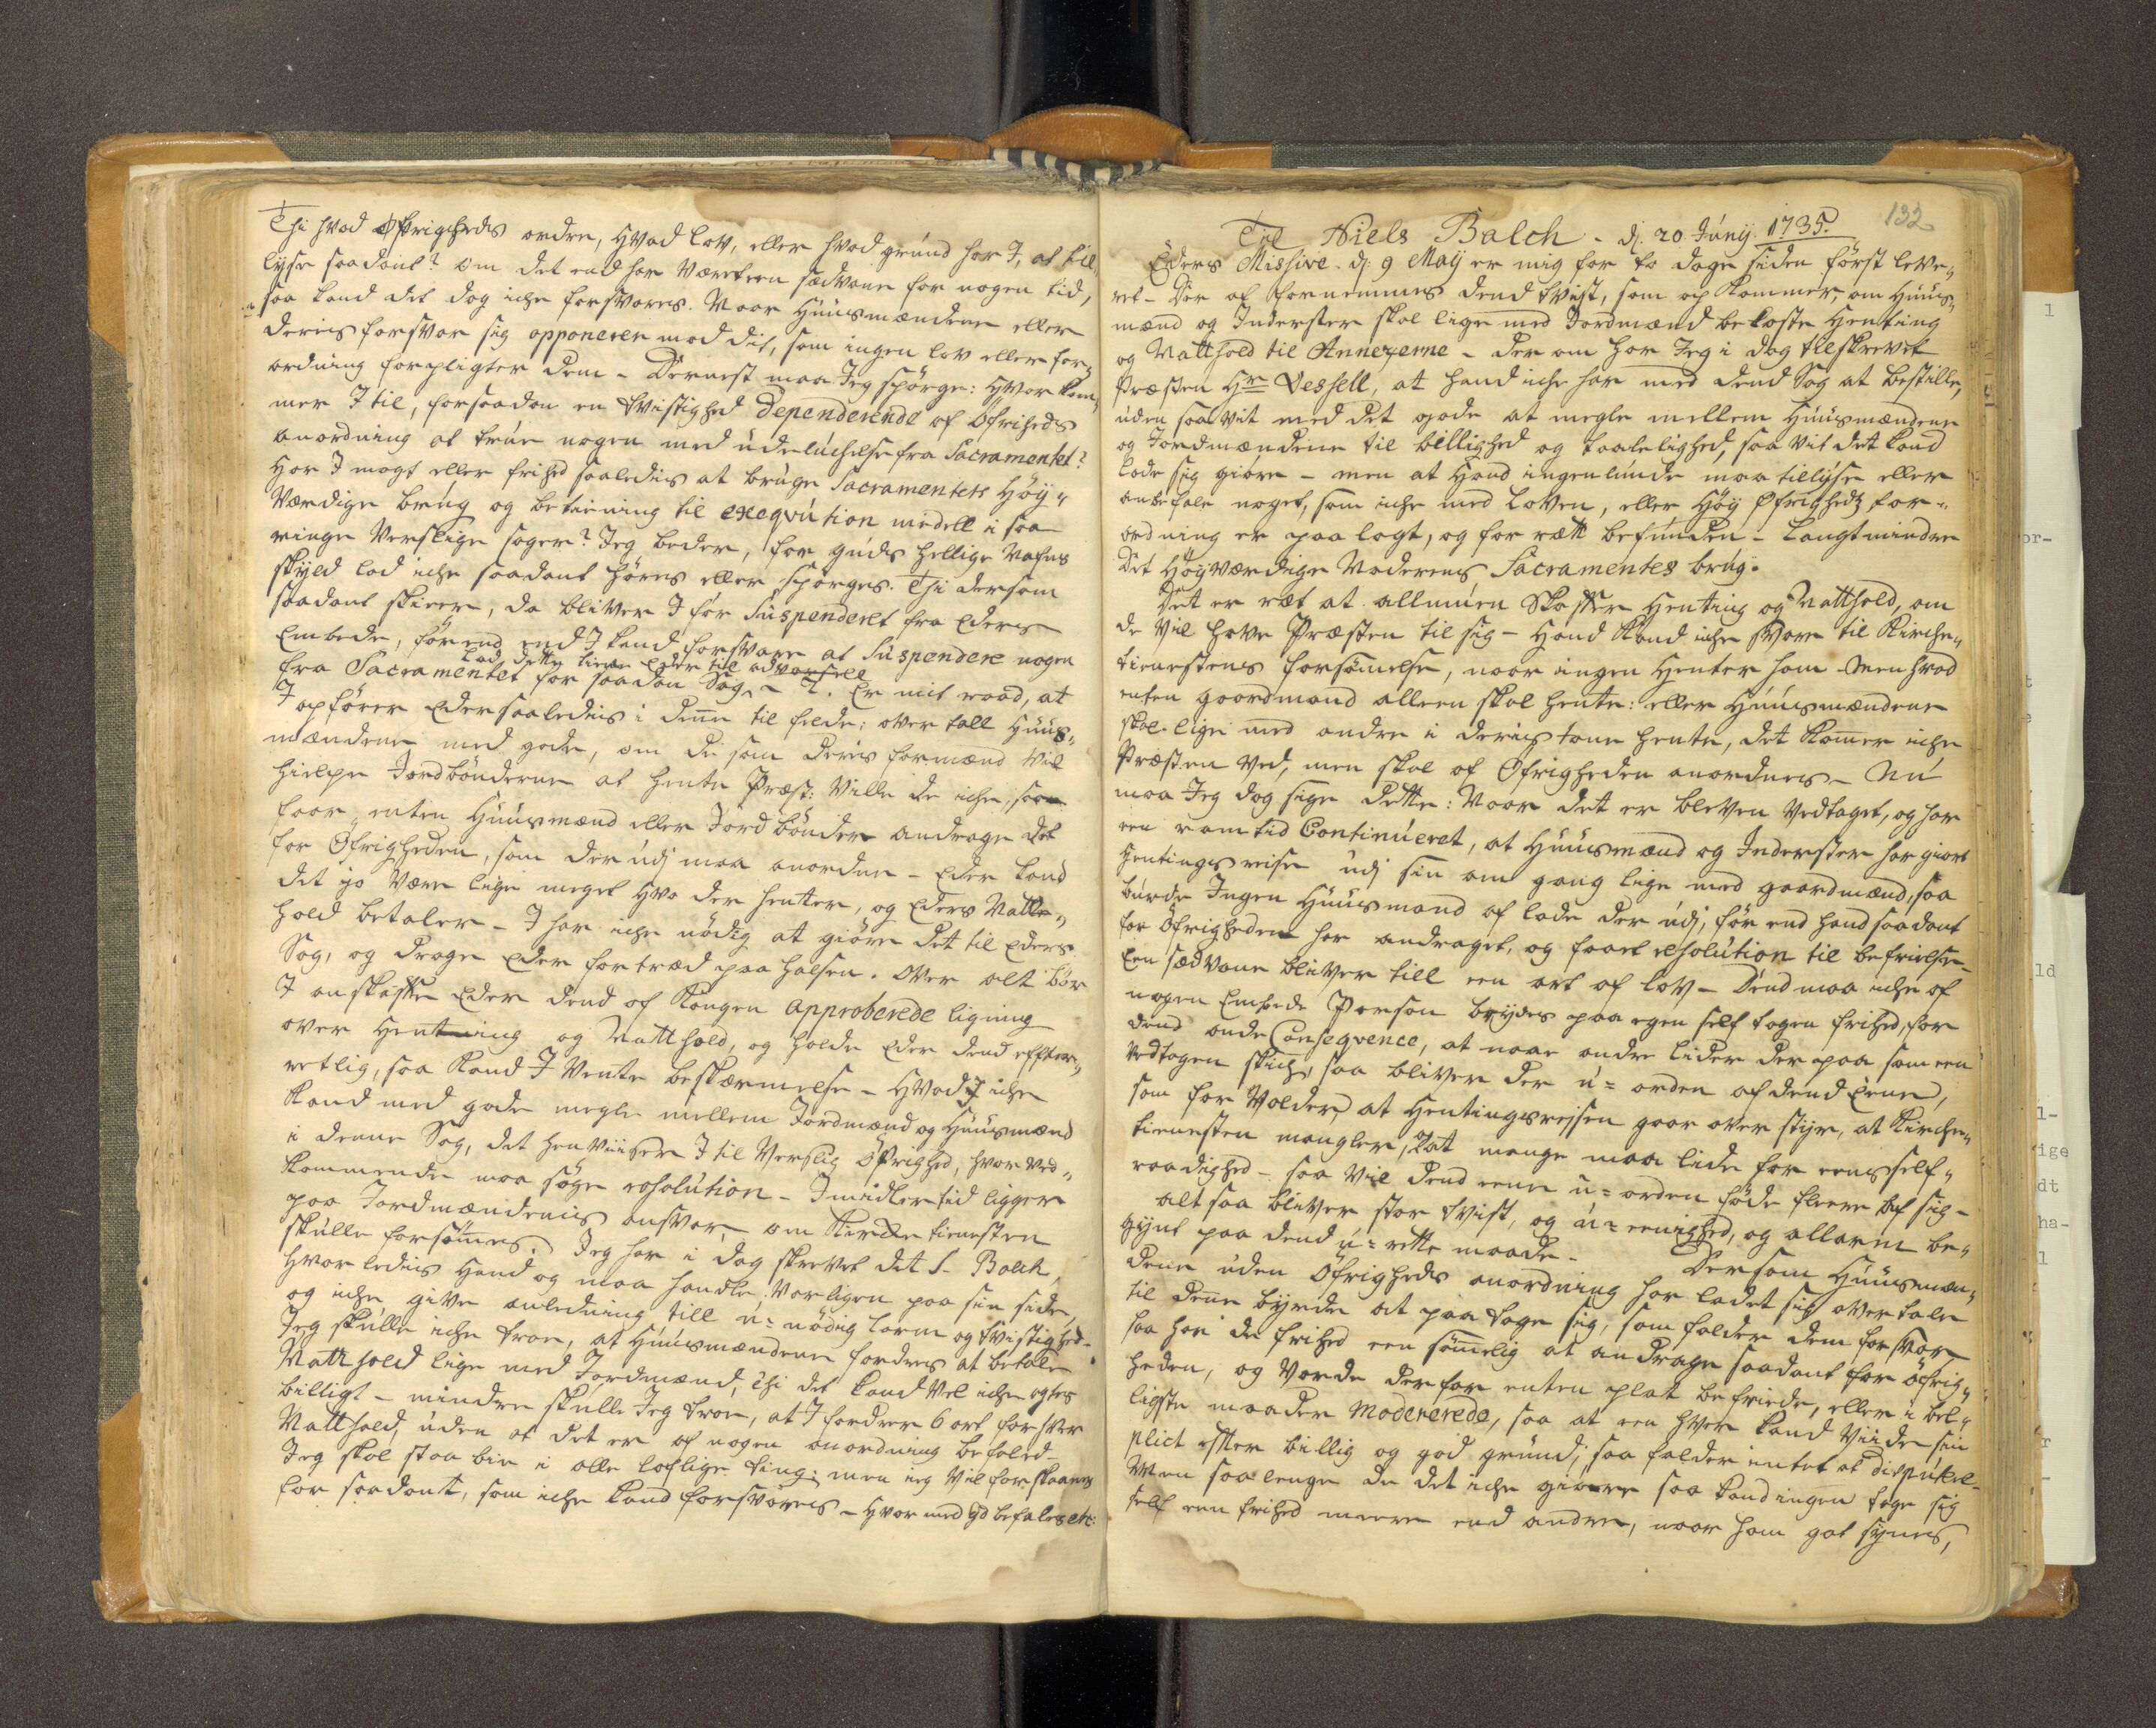 Thi hvad Øfrigheds ordre, hvad lov, eller hvad grund har I, at til„
lyse saadant? om det end har været een sædvane for nogen tid,
saa kand det dog iche forsvares. Naar Huusmændene eller
deris forsvar sig opponerer mod dit, som ingen lov eller for„
ordning forpligter dem - Dernest maa Jeg spörge: Hvor kom„
mer I til, for saadan en tvistighed dependerende af Öfrigheds
anordning at true nogen med udeluchelse fra Sacramentet?
Har I magt eller frihed saaledis at bruge Sacramentets Höy„
værdige brug og betiening til exeqvution middell i saa
ringe Verslige sager? Jeg beder, for guds hellige Nafns
skyld lad iche saadant höres eller spörges. Thi dersom
saadant skeer, da bliver I för Suspenderet fra Eders
Embede, förend end I kand forsvare at Suspendere nogen
Lad dette tiene Eder til advarsell
fra Sacramentet for saadan Sag. - 2. Er mit raad, at
I opförer Eder saaledis i denne tilfelde: overtall Huus„
mændene med gode, om de som deris formænd vil
hielpe Jordbönderne at hente Præst: Ville de iche, saa
faar enten Huusmænd eller Jordbönder andrage det
for Øfrigheden, som derudj maa anordne - Eder kand
det jo være lige meget hvo der henter, og Eders Natte„
hold betaler - I har iche nödig at giöre det til Eders
Sag, og drage Eder fortræd paa halsen. Over alt bör
I anskaffe Eder dend af Kongen approberede ligning
over Hentning og Natthold, og holde Eder dend effter„
retlig, saa kand I vente beskærmelse - Hvad I iche
kand med gode megle mellem Jordmænd og Huusmænd
i denne Sag, det henviiser I til Verslig Öfrighed, hvor ved„
kommende maa söge resolution - Imidlertid ligger
paa Jordmændenis ansvar, om Kirche tienesten
skulle forsömmes. Jeg har i dag skrevet det S. Balch,
hvorledis Hand og maa handle varligen paa sin side,
og iche give anledning till u=nödig larm og tvistighed.
Jeg skulle iche troe, at Huusmændene fordres at betale
Natthold lige med Jordmænd, thi det kand vel iche agtes
billigt - mindre skulle Jeg troe, at I fordrer 6 ort for hver
Natthold, uden at det er af nogen anordning befaled -
Jeg skal staa bie i alle lovlige ting; men jeg vil forskaanes
for saadant, som iche kand forsvares - Hvor med Gd befales etc:
132
Til Niels Balch - dj. 20 Junij 1735.
Eders Missive dj. 9 Maij er mig for to dage siden först leve„
ret - Der af fornemmes dend tvist, som op kommer, om Huus„
mænd og Inderster skal lige med Jordmænd bekoste Henting
og Natthold til Annexerne - der om har Jeg i dag tilskrevet
Præsten Hr Vessell, at hand iche har med dend Sag at bestille,
uden saavit med det gode at megle mellem Huusmændene
og Jordmændene til billighed og taalelighed, saa vit det kand
lade sig giöre - men at Hand ingenlunde maa tillyse eller
anbefale noget, som iche med Loven, eller Höy Øfrighedtz for„
ordning er paa lagt, og for rætt befunden - Langt mindre
det Höyværdige Naderens Sacramentes brug.
Det er ræt at allmuen skaffer Henting og Natthold, om
de vil have Præsten til sig - Hand kand iche svare til Kirche„
tienestens forsömelse, naar ingen Henter ham - Men hvad
enten gaardmænd alleen skal hente: eller Huusmændene
skal lige med andre i deris tour hente, det kommer iche
Præsten ved, men skal af Øfrigheden anordnes - Nu
maa Jeg dog sige dette: Naar det er bleven vedtaget, og har
een ram tid Continueret, at Huusmænd og Inderster har giort
Hentings reise udj sin om gang lige med gaardmænd, saa
burde Ingen Huusmand af lade der udj, för end hand saadant
for Öfrigheden har andraget, og faaet resolution til befrielse -
Een sædvane bliver till een art af lov - Dend maa iche af
nogen Embede Person brydes paa egen self tagen frihed, for
dend onde Conseqvence, at naar andre lider der paa som een
vedtagen skich, saa bliver der u=orden af dend Eene,
som for volder, at Hentingsreisen gaar over styr, at Kirche„
tienesten mangler, at mange maa lide for eens self„
raadighed - saa vil dend eene u=orden föde fleere af sig -
alt saa bliver stor tvist, og u=eenighed, og allarm be„
gynt paa dend u=rette maade - Dersom Huusmæn„
dene uden Øfrigheds anordning har ladet sig overtale
til denne byrde at paa tage sig, som falder dem for svar,
saa har de frihed een sömmelig at andrage saadant for Öfrig„
heden, og vorde derfor enten plat befriede, eller i bel„
ligste maader modererede, saa at een hver kand viide sin
plict effter billig og god grund; saa falder intet at disputere -
Men saa lenge de det iche giöre saa kand ingen tage sig
self een frihed meere end andre, naar ham got synes,